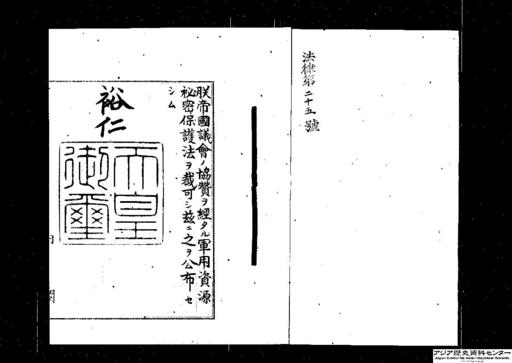 法律第二十五號
朕帝國議會ノ協贊ヲ經タル軍用資源
祕密保護法ヲ裁可シ茲ニ之ヲ公布セ
シム
裕仁
天皇
御璽
アジア歴史資料センター
Japan Center for Asian Historical Records